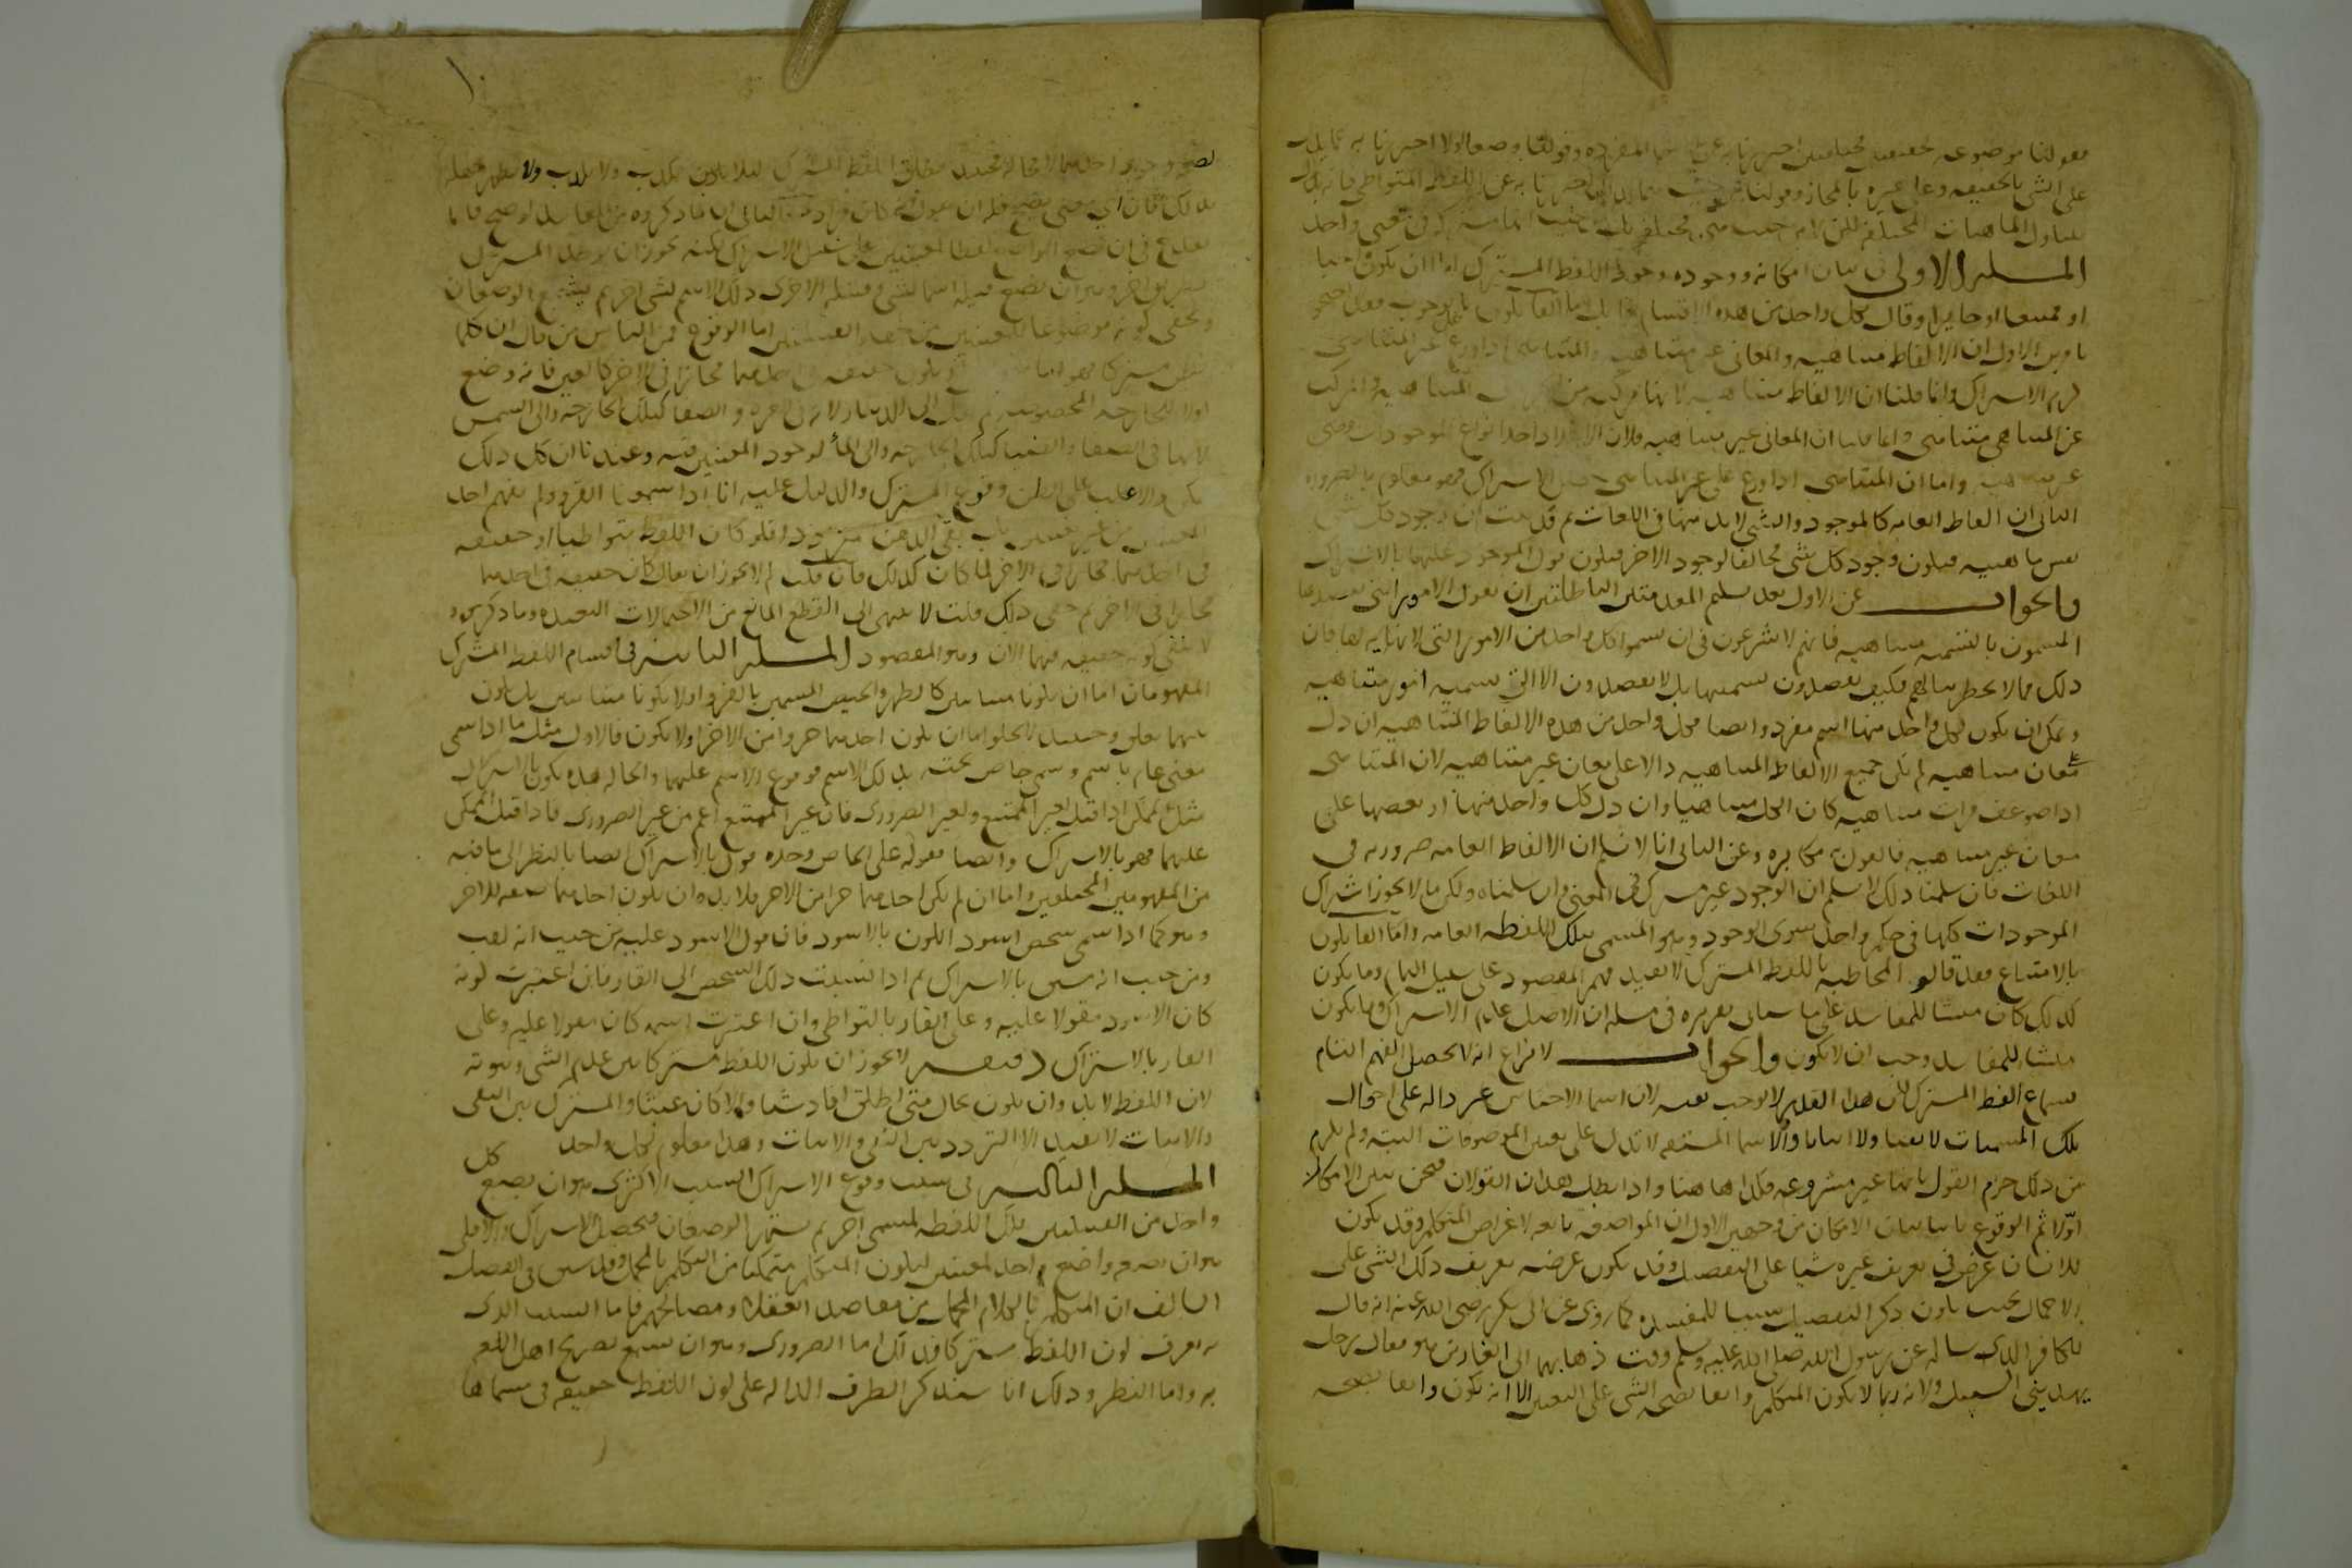 فقولنا الموضوعه لحقيقتين مختلفتين احترزنا به عن الاسما المفرده وقولنا وضعا اولا احترزنا به عما يدل
على الشي بالحقيقه وعلى غيره بالمجاز وقولنا من حيث هما كذلك احترزنا به عن اللفظ المتواطي فانه يتناول
الماهيات المختلفه لكن لا من حيث هي مختلفه بل من حيث انها مشتركه في معنى واحد
المسله الاولى في بيان امكانه ووجوده وجود اللفظ المشترك اما ان يكون واجبا
او ممتنعا او جايزا وقال بكل واحد من هذه الاقسام قايل اما القايلون بالوجوب فقد احتجوا
بامرين الاول ان الالفاظ متناهيه والمعاني غير متناهيه والمتناهي اذا وزع على غير المتناهي
لزم الاشتراك وانما قلنا ان الالفاظ متناهيه لانها مركبه من الحروف المتناهيه والمركب
من المتناهي متناهي وانما قلنا ان المعاني غير متناهيه فلان الاعداد احد انواع الموجودات وهي
غير متناهيه واما ان المتناهي اذا وزع على غير المتناهي حصل الاشتراك فهو معلوم بالضروره
الثاني ان الفاظ العامه كالموجود والشي لا بد منها في اللغات ثم قد ثبت ان وجود كل شي
نفس ماهيته فيكون وجود كل شي مخالفا لوجود الاخر فيكون قول الموجود عليها بالاشتراك
والجواب عن الاول بعد تسليم المقدمتين الباطلتين ان نقول الامور التي يقصدها
المسمون بالتسميه متناهيه فانهم لا يشرعون في ان يسموا كل واحد من الامور التي لا نهايه لها فان
ذلك مما لا يخطر ببالهم فكيف يقصدون تسميتها بل لا يقصدون الا الى تسميه امور متناهيه
ويمكن ان يكون لكل واحد منها اسم مفرد وايضا فكل واحد من هذه الالفاظ المتناهيه ان دل
على معان متناهيه لم يكن جميع الالفاظ المتناهيه دالا على معان غير متناهيه لان المتناهي
اذا ضوعف مرات متناهيه كان الكل متناهيا وان دل كل واحد منها او بعضها على
معان غير متناهيه فالقول به مكابره وعن الثاني انا لا نسلم ان الالفاظ العامه ضروريه في
اللغات فان سلمنا ذلك لا نسلم ان الوجود غير مشترك في المعنى وان سلمناه ولكن لم لا يجوز اشتراك
الموجودات كلها في حكم واحد سوى الوجود وهو المسمى بتلك اللفظه العامه واما القايلون
بالامتناع فقد قالوا المخاطبه باللفظ المشترك لا تفيد فهم المقصود على سبيل التمام وما يكون
كذلك كان منشا للمفاسد على ما سياتي تقريره في مسله ان الاصل عدم الاشتراك وما يكون
منشا للمفاسد وجب ان لا يكون والجواب لا نزاع انه لا يحصل الفهم التام
بسماع اللفظ المشترك لكن هذا القدر لا يوجب نفيه لان اسما الاجناس غير داله على احوال
تلك المسميات لا نفيا ولا اثباتا والاسما المشتقه لا تدل على تعين الموصوفات البته ولم يلزم
من ذلك جزم القول بانها غير مشروعه فكذا هاهنا واذا بطل هذان القولان فنحن نبين الامكان
اولا ثم الوقوع ثانيا بيان الامكان من وجهين الاول ان المواضعه تابعه لاغراض المتكلم وقد يكون
للانسان غرض في تعريف غيره شيا على التفصيل وقد يكون غرضه تعريف ذلك الشي على
الاجمال بحيث يكون ذكر التفصيل سببا للمفسده كما روي عن ابي بكر رضي الله عنه انه قال
للكافر الذي ساله عن رسول الله صلى الله عليه وسلم وقت ذهابهما الى الغار من هو فقال رجل
يهديني السبيل ولانه ربما لا يكون المتكلم واثقا بصحه الشي على التعيين الا انه يكون واثقا بصحه
١٠
لصحه وجود احدهما لا محاله فحينئذ يطلق اللفظ المشترك ليلا يكذب ولا يكذب ولا يظهر جهله
بذلك فان اي معنى يصح فله ان يقول انه كان مرادي الثاني ان ما ذكروه من المفاسد اوضح فانما
يقدح في ان تضع الواضع لفظا لمعنيين على سبيل الاشتراك لكنه يجوز ان يوجد المشترك
بطريق اخر وهو ان تضع قبيله اسما لشي وقبيله الاخرى ذلك الاسم لشي اخر ثم يشيع الوضعان
ويخفى كونه موضوعا للمعنيين من جهه القبيلتين اما الوقوع فمن الناس من قال ان كلما
يظن مشتركا فهو اما ان يكون حقيقه في احدهما مجازا في الاخر كالعين فانه وضع
اولا للجارحه المخصوصه ثم نقل الى الدينار لانه في العزه والصفا كتلك الجارحه والى الشمس
لانها في الصفا والضيا كتلك الجارحه والى الما لوجود المعنيين فيه وعندنا ان كل ذلك
ممكن والاغلب على الظن وقوع المشترك والدليل عليه انا اذا سمعنا القرو لم نفهم احد
المعنيين من غير تعيين بل بقي الذهن مترددا فلو كان اللفظ متواطيا او حقيقه
في احدهما مجازا في الاخر لما كان كذلك فان قلت لم لا يجوز ان يقال كان حقيقه في احدهما
مجازا في الاخر ثم خفي ذلك قلت لا ينتهى الى القطع المانع من الاحتمالات البعيده وما ذكرتموه
لا ينفي كونه حقيقه فيهما الان وهو المقصود المسله الثانيه في اقسام اللفظ المشترك
المفهومان اما ان يكونا متباينين كالطهر والحيض المسمين بالقرو او لا يكونا متباينين بل يكون
بينهما تعلق وحينئذ لا يخلو اما ان يكون احدهما جزوا من الاخر او لا يكون فالاول مثل ما اذا سمي
معنى عام باسم وسمي خاص تحته بذلك الاسم فوقوع الاسم عليهما والحاله هذه يكون بالاشتراك
مثل الممكن اذا قيل لغير الممتنع ولغير الضروري فان غير الممتنع اعم من غير الضروري فاذا قيل الممكن
عليهما فهو بالاشتراك وايضا فقوله على الخاص وحده قول بالاشتراك ايضا بالنظر الى ما فيه
من المفهومين المختلفين واما ان لم يكن احدهما جزا من الاخر فلا بد وان يكون احدهما صفه للاخر
وهو كما اذا سمي شخص اسود اللون بالاسود فان قول الاسود عليه من حيث انه لقب
ومن حيث انه مشتق بالاشتراك ثم اذا نسبت ذلك الشخص الى القار فان اعتبرت لونه
كان الاسود مقولا عليه وعلى القار بالتواطي وان اعتبرت اسمه كان مقولا عليه وعلى
القار بالاشتراك دقيقه لا يجوز ان يكون اللفظ مشتركا بين عدم الشي وثبوته
لان اللفظ لا بد وان يكون بحال متى اطلق افاد شيا والا كان عبثا والمشترك بين النفي
والاثبات لا يفيد الا التردد بين النفي والاثبات وهذا معلوم لكل واحد
المسله الثالثه في سبب وقوع الاشتراك السبب الاكثري هو ان تضع كل
واحد من القبيلتين تلك اللفظه لمسمى اخر ثم يشتهر الوضعان فيحصل الاشتراك والاقلي
هو ان يضعه واضع واحد لمعنيين ليكون المتكلم متمكنا من التكلم بالمجمل وقد سبق في الفصل
السالف ان المتكلم بالكلام المجمل من مقاصد العقلا ومصالحهم فاما السبب الذي
به يعرف كون اللفظ مشتركا فذلك اما الضروري وهو ان يسمع تصريح اهل اللغه
به واما النظر وذلك انا سنذكر الطرق الداله على كون اللفظ حقيقه في مسماها